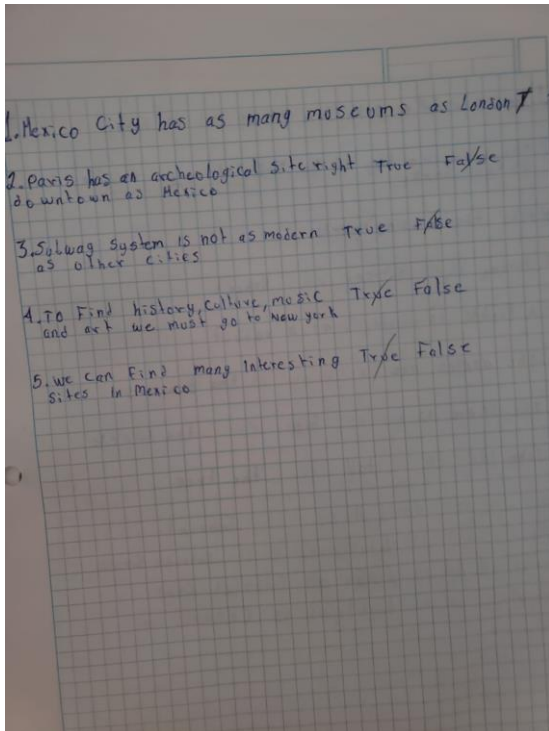 1. Mexico City has as mang moseums as London T
2. Paris has an archeological site right True False
downtown as Mexico
3. Solwag System is not as modern True False
as other cities
4. To Find history, Culture, mosic True False
and art we most go to New york
5. we can Find mang Interesting True False
Sites In Mexico